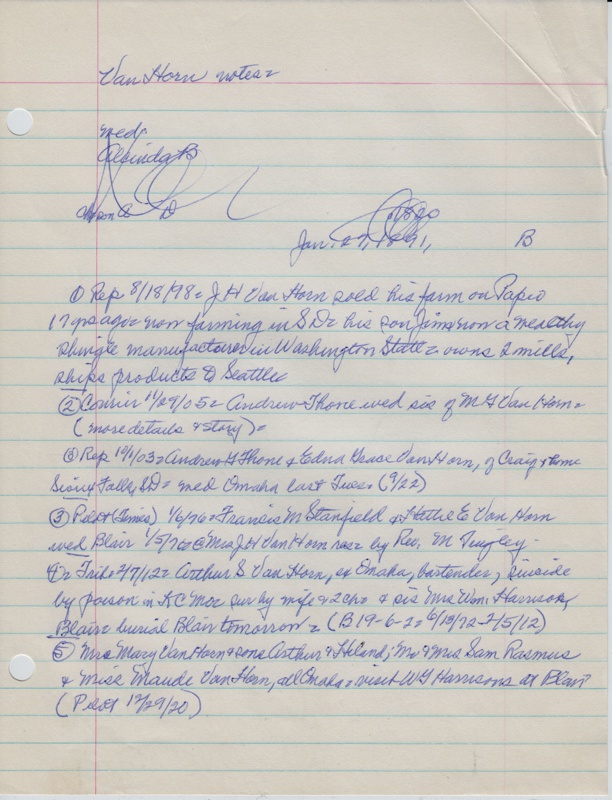 Van Horn notes=
med,
Alvinda B
D
Jan. 27, 1891,
B
① Rep 8/18/98= J H Van Horn sold his farm on Papio
17 yrs ago= now farming in SD= his son Jim= now a wealthy
shingle manufacturer in Washington State= owns 2 mills,
ships products to Seattle
② Courier 11/29/05= Andrew Thone wed sis of M G Van Horn=
(more details & story)=
③ Rep 10/1/03= Andrew G Thone & Edna Grace Van Horn, of Craig & home
Sioux Falls, SD= med Omaha last Tues= (9/22)
③ Pilot (Times) 1/6/76= Francis M Stanfield & Hattie E Van Horn
wed Blair 1/5/76 @ Mrs J H Van Horn res= by Rev. M Tingley-
4)= Trib= 2/7/12= Arthur S Van Horn, ex Omaha, bartender, suicide
by poison in KC Mo= sur by wife & 2 ch= & sis Mrs Wm. Harrison,
Blair= burial Blair tomorrow= (B 19-6-2= 6/13/72-2/5/12)
⑤ Mrs Mary Van Horn & sons Arthur & Leland; Mr & Mrs Sam Rasmus
& Miss Maude Van Horn, all Omaha= visit W G Harrisons at Blair
(Pilot 12/29/20)